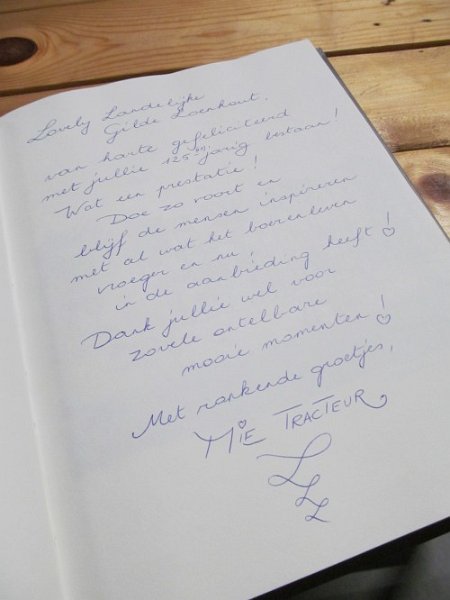 Lovely Landelijke
Gilde Loenhout,
van harte gefeliciteerd
met jullie 125-jarig bestaan!
Wat een prestatie!
Doe zo voort en
blijf de mensen inspireren
met al wat het boerenleven
vroeger en nu,
in de aanbieding heeft!
Dank jullie wel voor
zovele ontelbare
mooie momenten!
Met ronkende groetjes,
MIE TRACTEUR
LLL